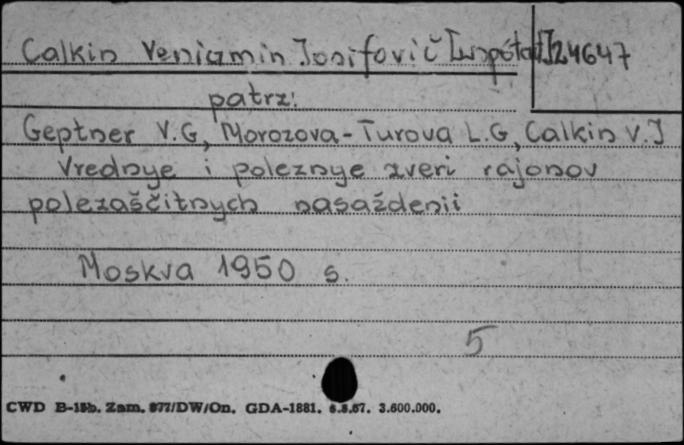 Calkin Veniamin Iosifovič [współaut] 24647
patrz:
Geptner V.G, Morozova-Turova L.G, Calkin V.I
Vrednye i poleznye zveri rajonov
polezaščitnych nasaždenii
Moskva 1950 s.
5
CWD B-15b. Zam. 877/DW/On. GDA-1881. 6.8.67. 3.600.000.